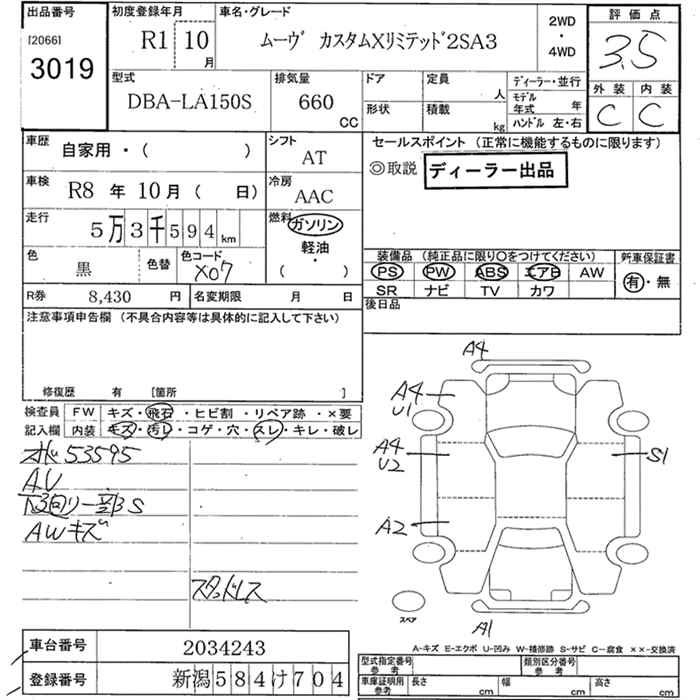 出品番号
[2066]
3019
初度登録年月
R1 10 月
車名・グレード
ムーヴ カスタムXリミテッド2SA3
2WD
・
4WD
評価点
3.5
外装 内装
C C
型式
DBA-LA150S
排気量
660 CC
ドア
形状
定員 人
積載 kg
ディーラー・並行
モデル年式 年
ハンドル 左・右
車歴 自家用・( )
シフト AT
車検 R8 年 10 月 ( 日)
冷房 AAC
走行 5万3千594 km
燃料 ガソリン
軽油
・
( )
色 黒 色替 色コード X07
R券 8,430 円 名変期限 月 日
セールスポイント (正常に機能するものに限ります)
◎取説 ディーラー出品
装備品 (純正品に限り○をつけてください)
PS PW ABS エアB AW
SR ナビ TV カワ
新車保証書
有・無
後日品
注意事項申告欄 (不具合内容等は具体的に記入して下さい)
修復歴 有 [箇所 ]
検査員記入欄
FW キズ・飛石・ヒビ割・リペア跡・×要
内装 キズ・汚レ・コゲ・穴・スレ・キレ・破レ
53595
AU
下廻リ一部S
AWキズ
スタッドレス
A4
A4
U1
A4
U2
S1
A2
スペア
A1
A-キズ E-エクボ U-凹み W-補修跡 S-サビ C-腐食 ××-交換済
車台番号 2034243
登録番号 新潟584け704
型式指定番号 参考
類別区分番号 参考
車庫証明用 参考
長さ cm 幅 cm 高さ cm